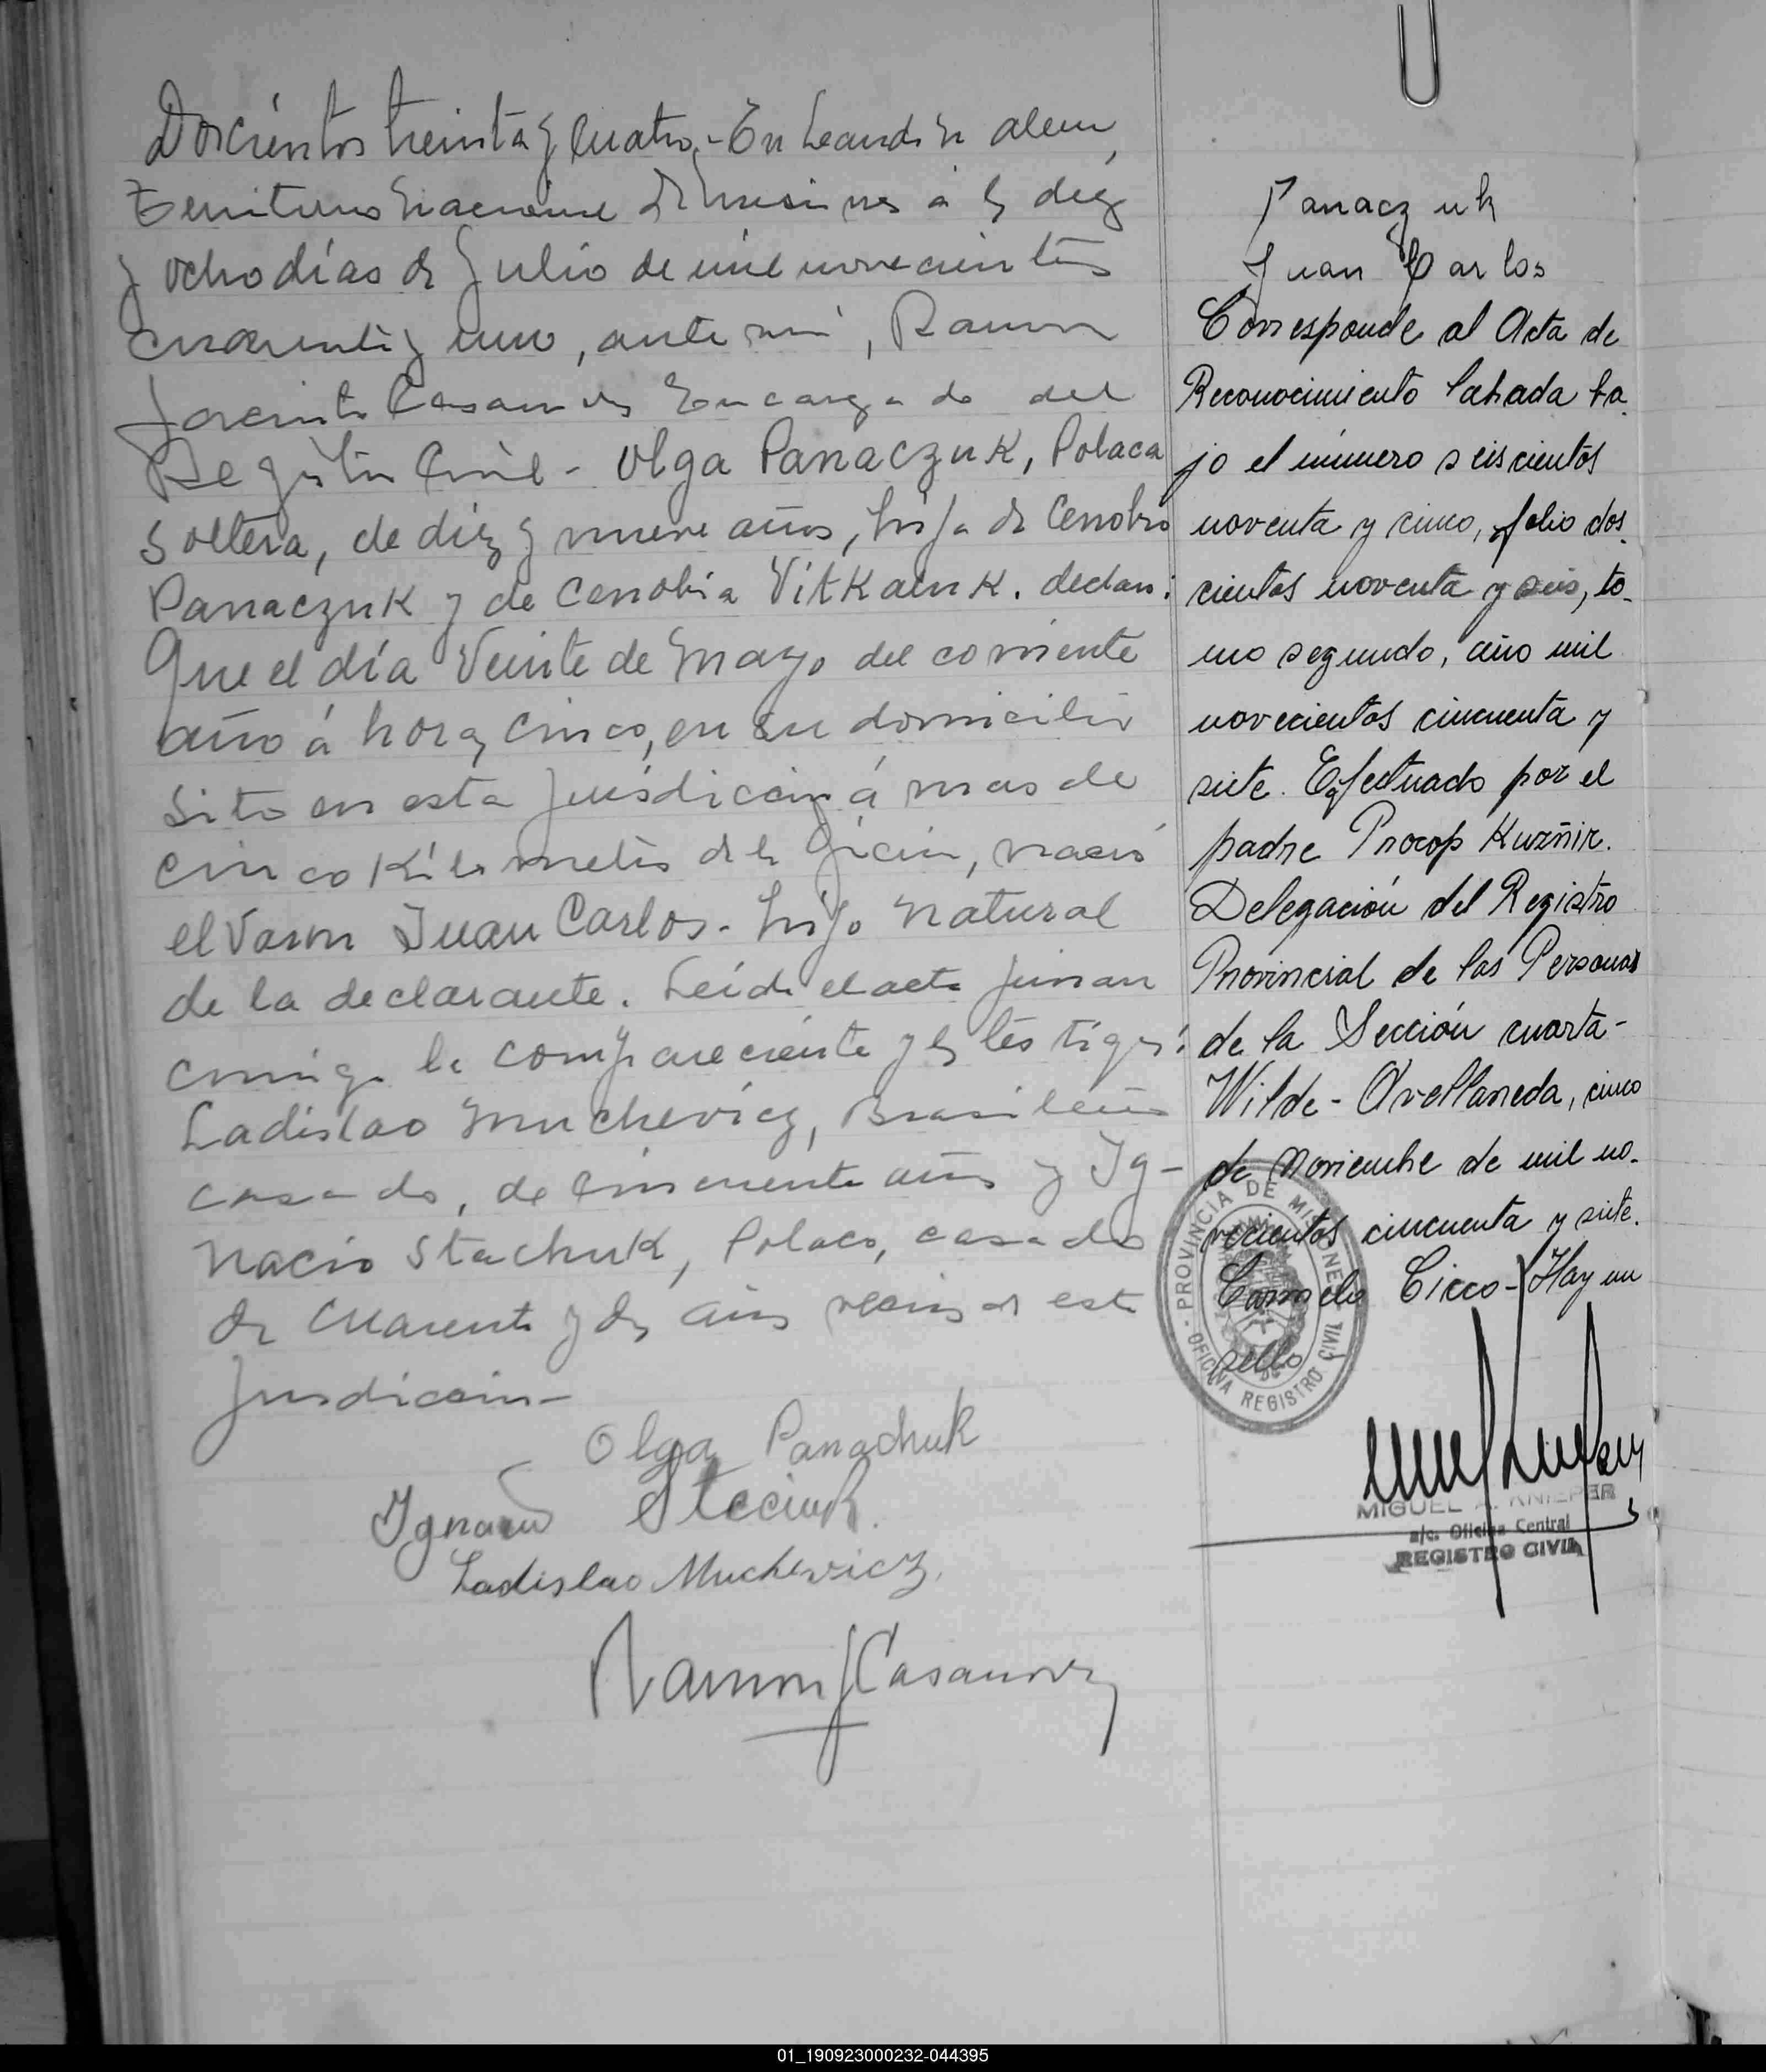 Doscientos treinta y cuatro.- En Leandro N. Alem,
Territorio Nacional de Misiones á los diez
y ocho días de Julio de mil novecientos
cuarenta y uno, ante mi, Ramon
Jacinto Casanova Encargado del
Registro Civil - Olga Panaczuk, Polaca
soltera, de diez y nueve años, hija de Cenobio
Panaczuk y de Cenobia Vitkaluk. declara:
Que el día Veinte de Mayo del corriente
año á horas cinco, en su domicilio
sito en esta jurisdiccion á mas de
cinco Kilometros de la oficina, nació
el Varon Juan Carlos. hijo natural
de la declarante. Leida el acta firman
conmigo la compareciente y los testigos:
Ladislao Muchevicz, Brasileño
casado, de cincuenta años y Ig-
nacio Stachuk, Polaco, casado
de cuarenta y dos años vecinos de esta
Jurisdiccion-
Olga Panachuk
Ignacio Steciuk.
Ladislao Muchevicz.
Ramon J Casanova
Panaczuk
Juan Carlos
Corresponde al Acta de
Reconocimiento labrada ba-
jo el número seiscientos
noventa y cinco, folio dos-
cientos noventa y seis, to-
mo segundo, año mil
novecientos cincuenta y
siete. Efectuado por el
padre Procop Kuznir.
Delegación del Registro
Provincial de las Personas
de la Sección cuarta-
Wilde- Avellaneda, cinco
de Noviembre de mil no-
vecientos cincuenta y siete.
Carmelo Cicco- Hay un
sello
PROVINCIA DE MISIONES
OFICINA REGISTRO CIVIL
MIGUEL A. KNIEPER
a/c. Oficina Central
REGISTRO CIVIL
01_190923000232-044395